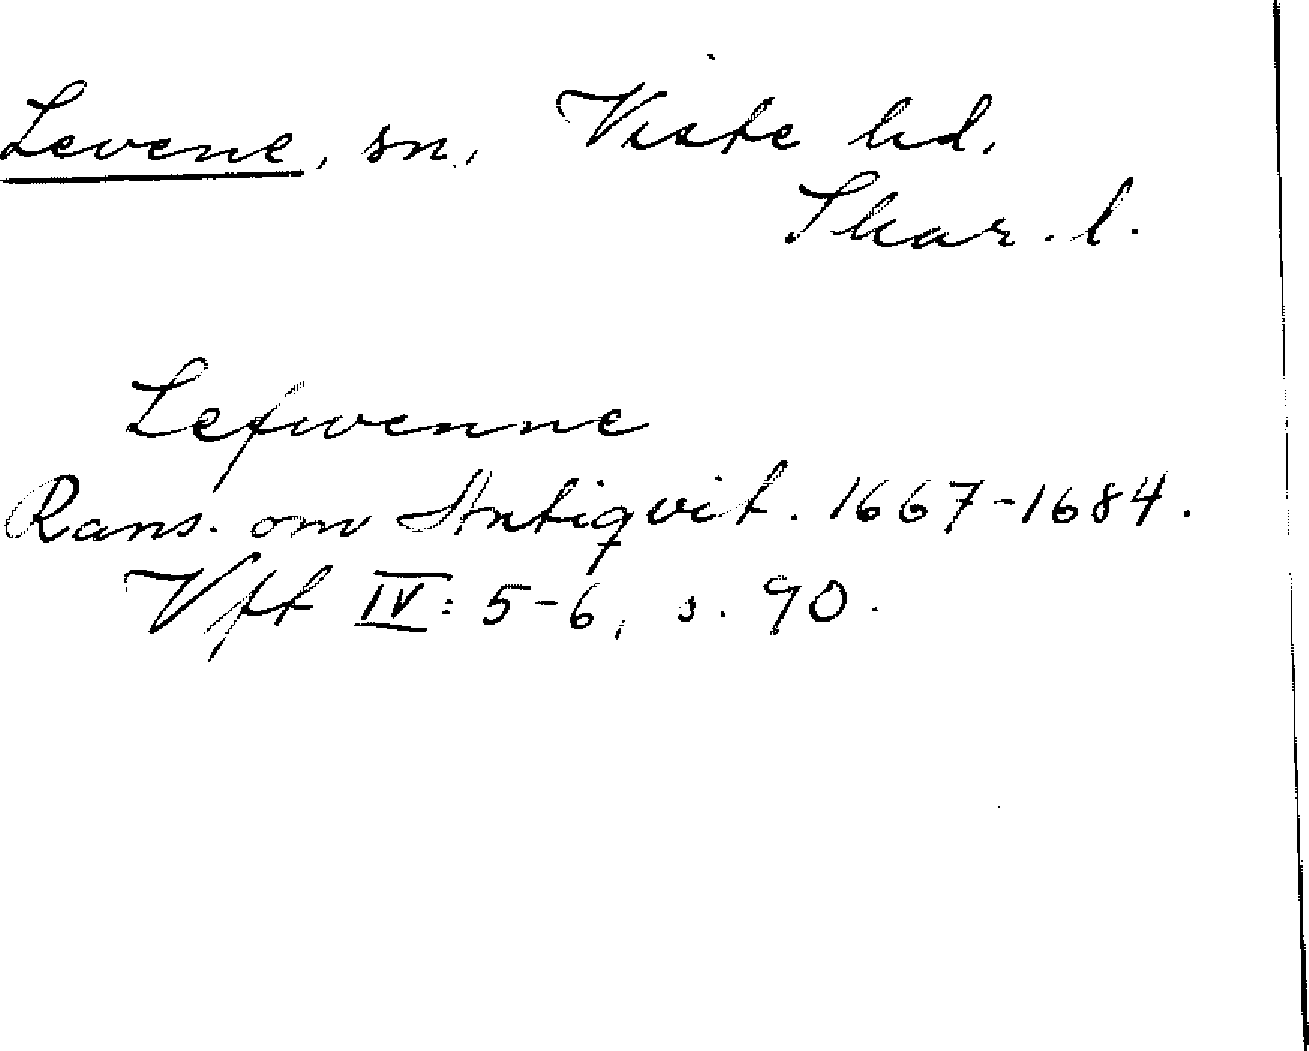 Levene, sn., Viste hd.
Skar. l.
Lefwenne
Rans. om Antiqvit. 1667-1684.
Vft IV: 5-6, s. 90.